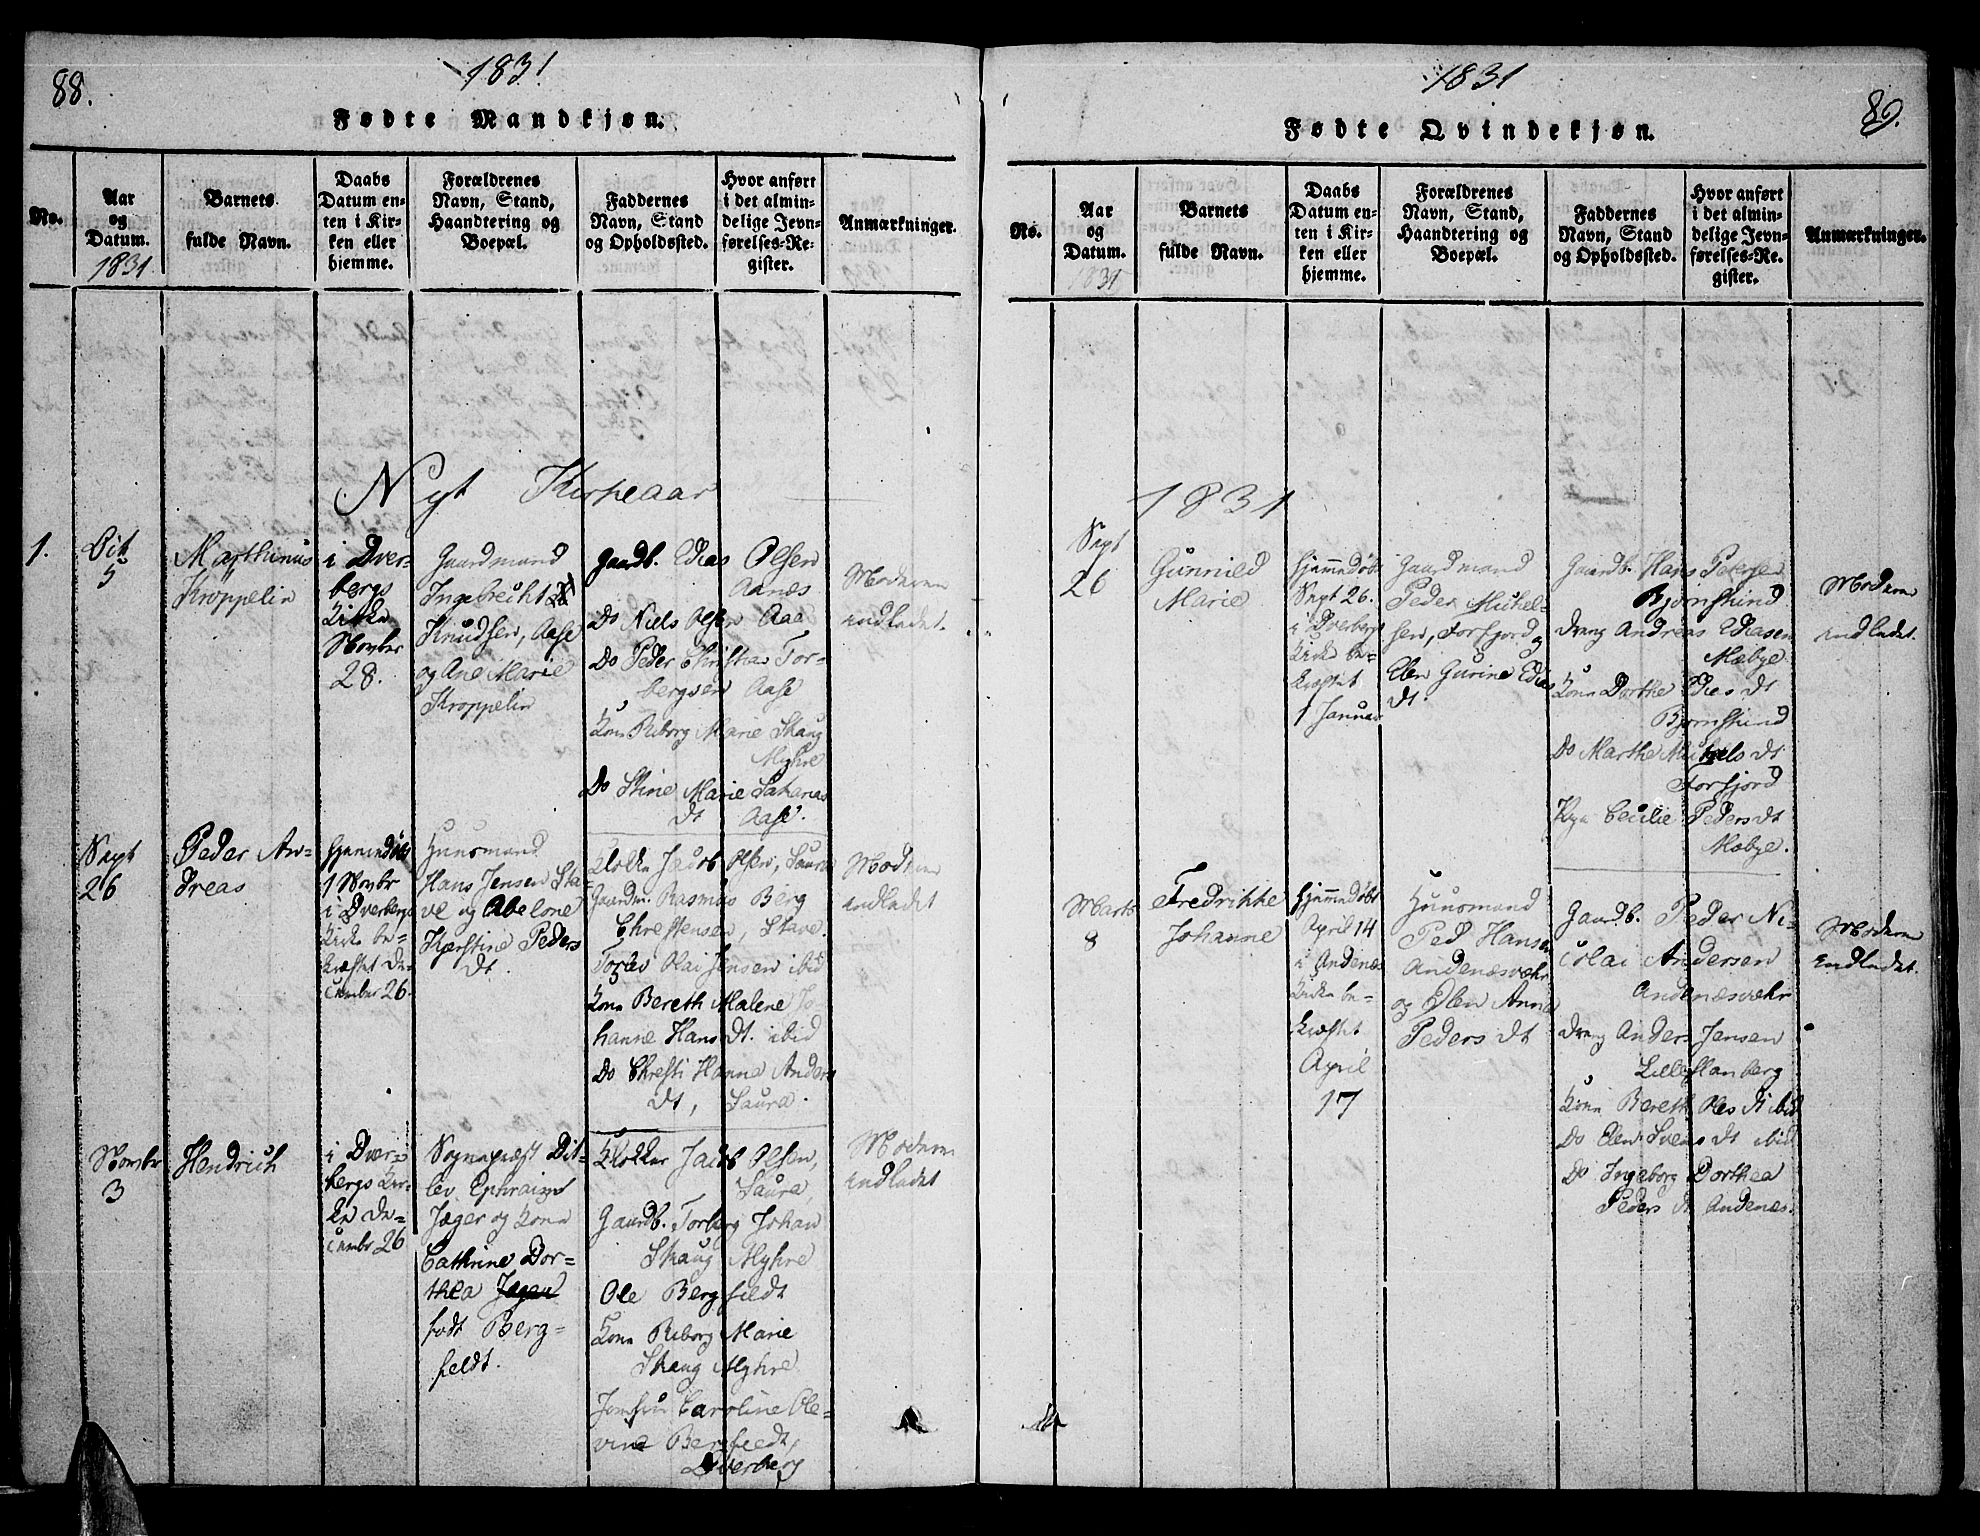 88.
1831
Fødte Mandkjøn.
No.
Aar
og
Datum.
1831
Barnets
fulde Navn.
Daabs
Datum en-
ten i Kir-
ken eller
hjemme.
Forældrenes
Navn, Stand,
Haandtering og
Boepæl.
Faddernes
Navn, Stand
og Opholdssted.
Hvor anført
i det almin-
delige Jevn-
førelses-Re-
gister.
Anmærkninger.
Nyt Kirkeaar
1.
Oct
5
Marthinus
Kröppelin
i Dver-
bergs
Kirke
Novbr
28.
Gaardmand
Ingebrecht
Knudsen, Aase
og Ane Marie
Kroppelin
Gaardb. Elias Olsen
Aanæs
Do Niels Olsen Aae
Do Peder Christian Tor-
bergsen Aase
Kone Riborg Marie Skaug
Myhre
Do Stine Marie Zakarias
dt Aase.
Moderen
indledet.
Sept
26
Peder An-
dreas
Hjemmedöbt
1 Novbr
i Dverbergs
Kirke be-
kræftet De-
cember 26.
Huusmand
Hans Jensen Sta-
ve og Abelone
Kjerstine Peders
dt.
Klokker Jacob Olsen, Saura
Gaardm. Rasmus Berg
Christensen, Stave.
Olai Jensen ibid
Kone Bereth Malene Jo-
hanne Hans dt. ibid
Do Christi Hanna Anders
dt, Saura.
Moderen
indledet
Novbr
3
Hendrich
i Dver-
bergs Kir-
ke De-
cembr 26
Sognepræst Dit-
lev Ephraim
Jæger og Kone
Cathrine Dor-
thea Jæger
fodt Berg-
feldt.
Klokker Jacob Olsen,
Saura,
Gaardb. Torberg Johan
Skaug Myhre
Ole Bergfeldt
Kone Riborg Marie
Skaug Myhre
Jomfru Caroline Ole-
vine Bergfeldt,
Dverberg
Moderen
indledet
1831
89.
Fødte Qvindekjøn.
No.
Aar
og
Datum.
1831
Barnets
fulde Navn.
Daabs
Datum en-
ten i Kir-
ken eller
hjemme.
Forældrenes
Navn, Stand,
Haandtering og
Boepæl.
Faddernes
Navn, Stand
og Opholdssted.
Hvor anført
i det almin-
delige Jevn-
førelses-Re-
gister.
Anmærkninger.
1831
Sept
26
Gunnild
Marie
Hjemmedöbt
Sept 26.
i Dverbergs
Kirke be-
kræftet
1 Januar
Gaardmand
Peder Michel-
sen, Forfjord og
Elen Gurine Elias
dt.
Gaardb. Hans Petersen
Bjornskind
Dreng Andreas Eliasen
Mæbye
Kone Dorthe Elies dt
Bjornskind
Do Marthe Michels dt
Forfjord
Pige Cecilie Peders dt
Mæbye.
Moderen
indledet.
Marts
8
Fredrikke
Johanne
Hjemmedöbt
April 14
i Andenæs
Kirke be-
kræftet
April
17
Huusmand
Ped Hansen
Andenæsvær
og Elen Anna
Peders dt
Gaardb. Peder Ni-
colai Andersen
Andenæsvær
Dreng Anders Jensen
Kone Bereth Oles dt ibid
Do Elen Svens dt ibid
Do Ingeborg Dorthea
Peders dt Andenæs.
Moderen
indledet.